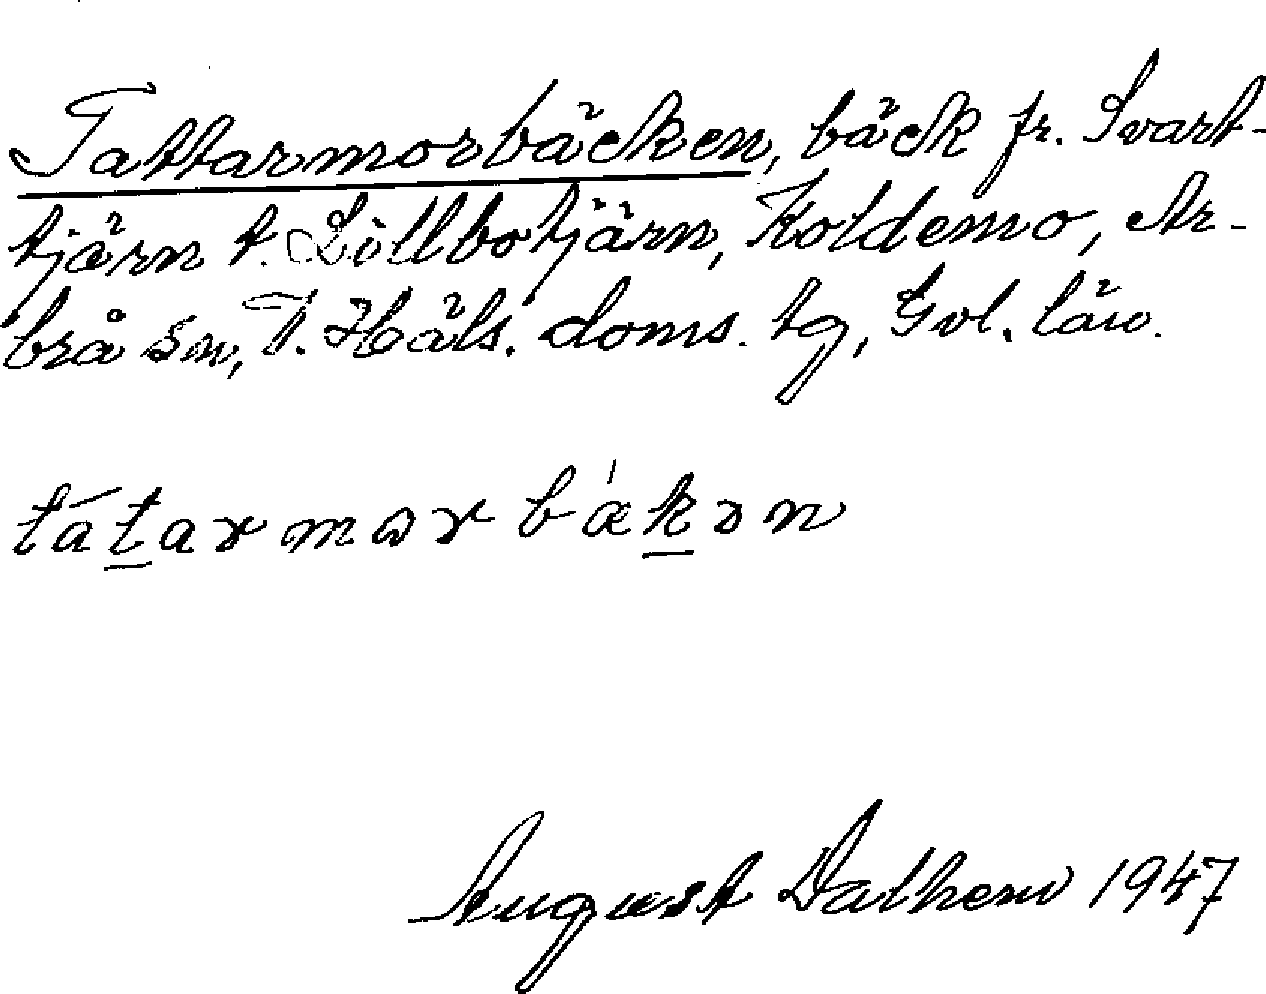 Tattarmorbäcken, bäck fr. Svart-
tjärn t. Lillbotjärn, Koldemo, Ar-
brå sn, V. Häls. doms. tg, Gvl. län.
tátarmorbækən
August Dalhem 1947